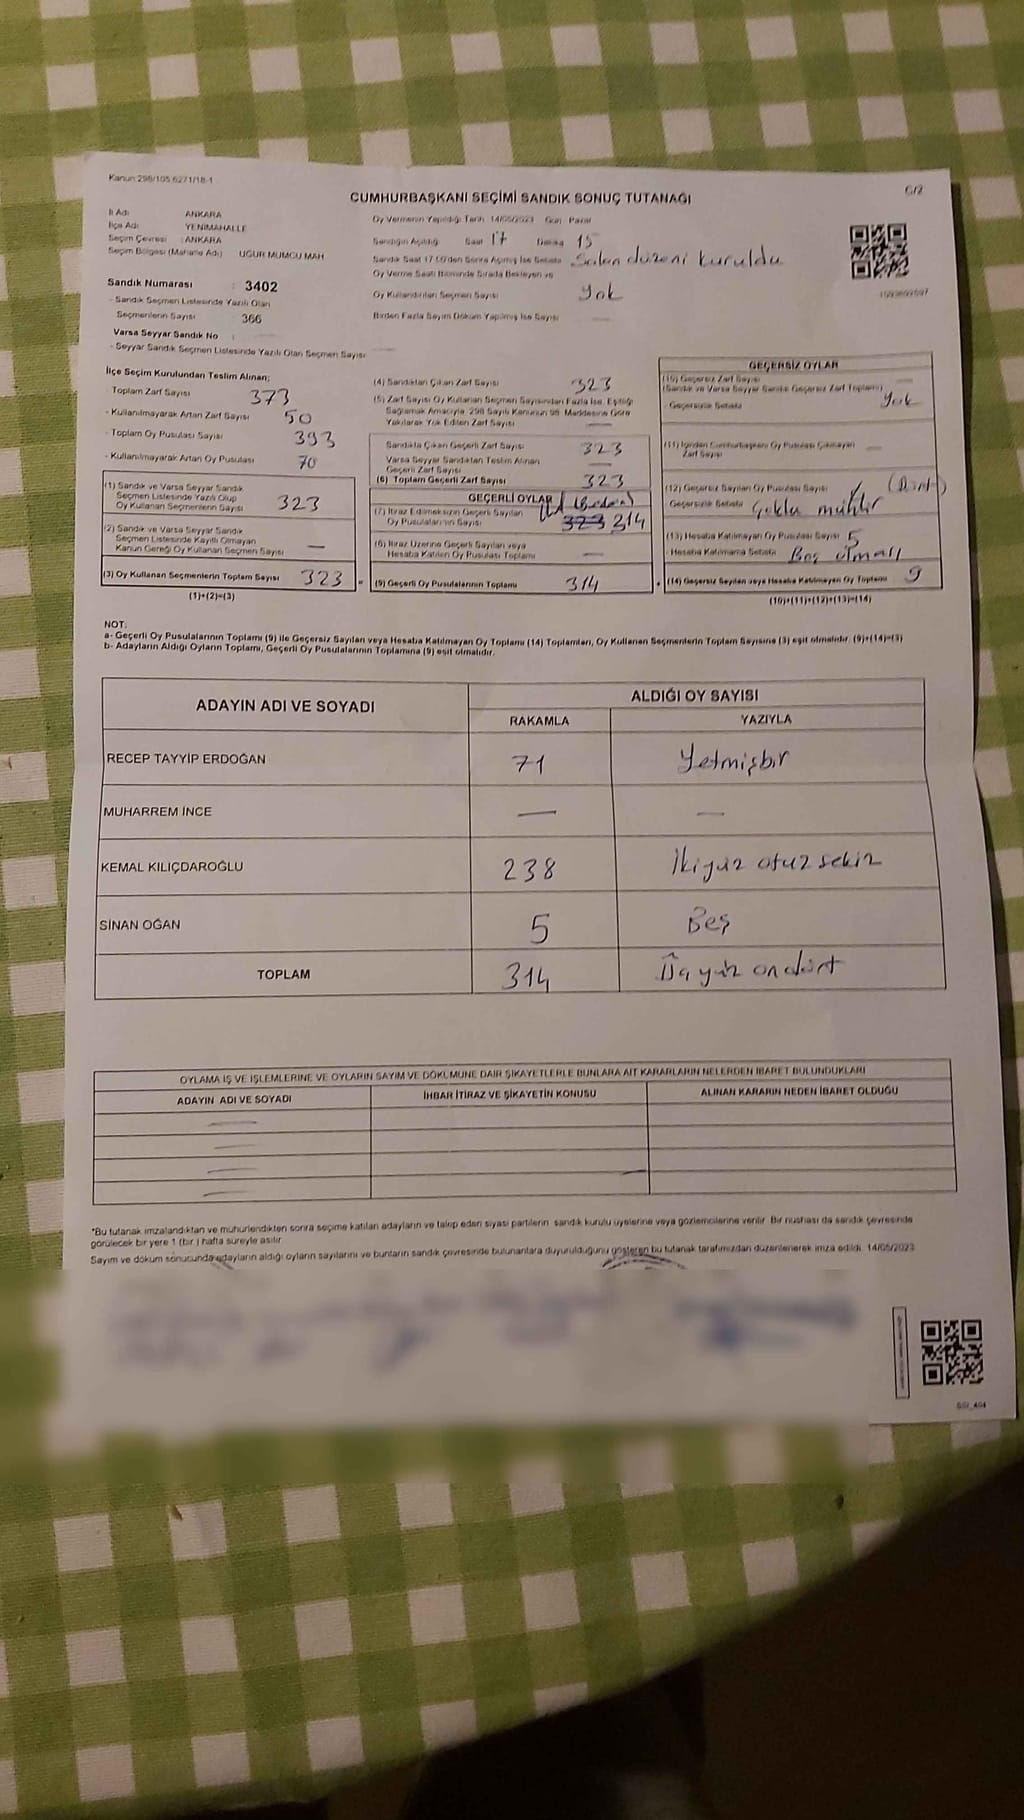 Kanun 298/105 6271/18-1
6/2
CUMHURBAŞKANI SEÇİMİ SANDIK SONUÇ TUTANAĞI
İl Adı ANKARA
İlçe Adı YENİMAHALLE
Seçim Çevresi : ANKARA
Seçim Bölgesi (Mahalle Adı) UĞUR MUMCU MAH
Sandık Numarası : 3402
- Sandık Seçmen Listesinde Yazılı Olan
Seçmenlerin Sayısı 366
Varsa Seyyar Sandık No :
- Seyyar Sandık Seçmen Listesinde Yazılı Olan Seçmen Sayısı
Oy Vermenin Yapıldığı Tarih 14/05/2023 Gün Pazar
Sandığın Açıldığı Saat 17 Dakika 15
Sandık Saat 17.00'den Sonra Açılmış İse Sebebi Salon düzeni kuruldu
Oy Verme Saati Bitiminde Sırada Bekleyen ve
Oy Kullandırılan Seçmen Sayısı Yok
Birden Fazla Sayım Döküm Yapılmış İse Sayısı —
İlçe Seçim Kurulundan Teslim Alınan;
- Toplam Zarf Sayısı 373
- Kullanılmayarak Artan Zarf Sayısı 50
- Toplam Oy Pusulası Sayısı 393
- Kullanılmayarak Artan Oy Pusulası 70
(1) Sandık ve Varsa Seyyar Sandık
Seçmen Listesinde Yazılı Olup
Oy Kullanan Seçmenlerin Sayısı 323
(2) Sandık ve Varsa Seyyar Sandık
Seçmen Listesinde Kayıtlı Olmayan
Kanun Gereği Oy Kullanan Seçmen Sayısı —
(3) Oy Kullanan Seçmenlerin Toplam Sayısı 323
(1)+(2)=(3)
(4) Sandıktan Çıkan Zarf Sayısı 323
(5) Zarf Sayısı Oy Kullanan Seçmen Sayısından Fazla İse, Eşitliği
Sağlamak Amacıyla, 298 Sayılı Kanunun 98. Maddesine Göre
Yakılarak Yok Edilen Zarf Sayısı —
Sandıkta Çıkan Geçerli Zarf Sayısı 323
Varsa Seyyar Sandıktan Teslim Alınan
Geçerli Zarf Sayısı —
(6) Toplam Geçerli Zarf Sayısı 323
GEÇERLİ OYLAR
(7) İtiraz Edilmeksizin Geçerli Sayılan
Oy Pusulalarının Sayısı 323 314
(8) İtiraz Üzerine Geçerli Sayılan veya
Hesaba Katılan Oy Pusulası Toplamı —
(9) Geçerli Oy Pusulalarının Toplamı 314
GEÇERSİZ OYLAR
(10) Geçersiz Zarf Sayısı —
(Sandık ve Varsa Seyyar Sandık Geçersiz Zarf Toplamı)
- Geçersizlik Sebebi Yok
(11) İçinden Cumhurbaşkanı Oy Pusulası Çıkmayan
Zarf Sayısı —
(12) Geçersiz Sayılan Oy Pusulası Sayısı (Dört)
Geçersizlik Sebebi Çoklu mühür
(13) Hesaba Katılmayan Oy Pusulası Sayısı 5
- Hesaba Katılmama Sebebi Boş olması
(14) Geçersiz Sayılan veya Hesaba Katılmayan Oy Toplamı 9
(10)+(11)+(12)+(13)=(14)
NOT:
a- Geçerli Oy Pusulalarının Toplamı (9) ile Geçersiz Sayılan veya Hesaba Katılmayan Oy Toplamı (14) Toplamları, Oy Kullanan Seçmenlerin Toplam Sayısına (3) eşit olmalıdır. (9)+(14)=(3)
b- Adayların Aldığı Oyların Toplamı, Geçerli Oy Pusulalarının Toplamına (9) eşit olmalıdır.
ADAYIN ADI VE SOYADI
ALDIĞI OY SAYISI
RAKAMLA YAZIYLA
RECEP TAYYİP ERDOĞAN 71 Yetmişbir
MUHARREM İNCE — —
KEMAL KILIÇDAROĞLU 238 İkiyüz otuz sekiz
SİNAN OĞAN 5 Beş
TOPLAM 314 Üçyüz ondört
OYLAMA İŞ VE İŞLEMLERİNE VE OYLARIN SAYIM VE DÖKÜMÜNE DAİR ŞİKAYETLERLE BUNLARA AİT KARARLARIN NELERDEN İBARET BULUNDUKLARI
ADAYIN ADI VE SOYADI İHBAR İTİRAZ VE ŞİKAYETİN KONUSU ALINAN KARARIN NEDEN İBARET OLDUĞU
*Bu tutanak imzalandıktan ve mühürlendikten sonra seçime katılan adayların ve talep eden siyasi partilerin sandık kurulu üyelerine veya gözlemcilerine verilir. Bir nüshası da sandık çevresinde
görülecek bir yere 1 (bir ) hafta süreyle asılır
Sayım ve döküm sonucunda adayların aldığı oyların sayılarını ve bunların sandık çevresinde bulunanlara duyurulduğunu gösteren bu tutanak tarafımızdan düzenlenerek imza edildi. 14/05/2023